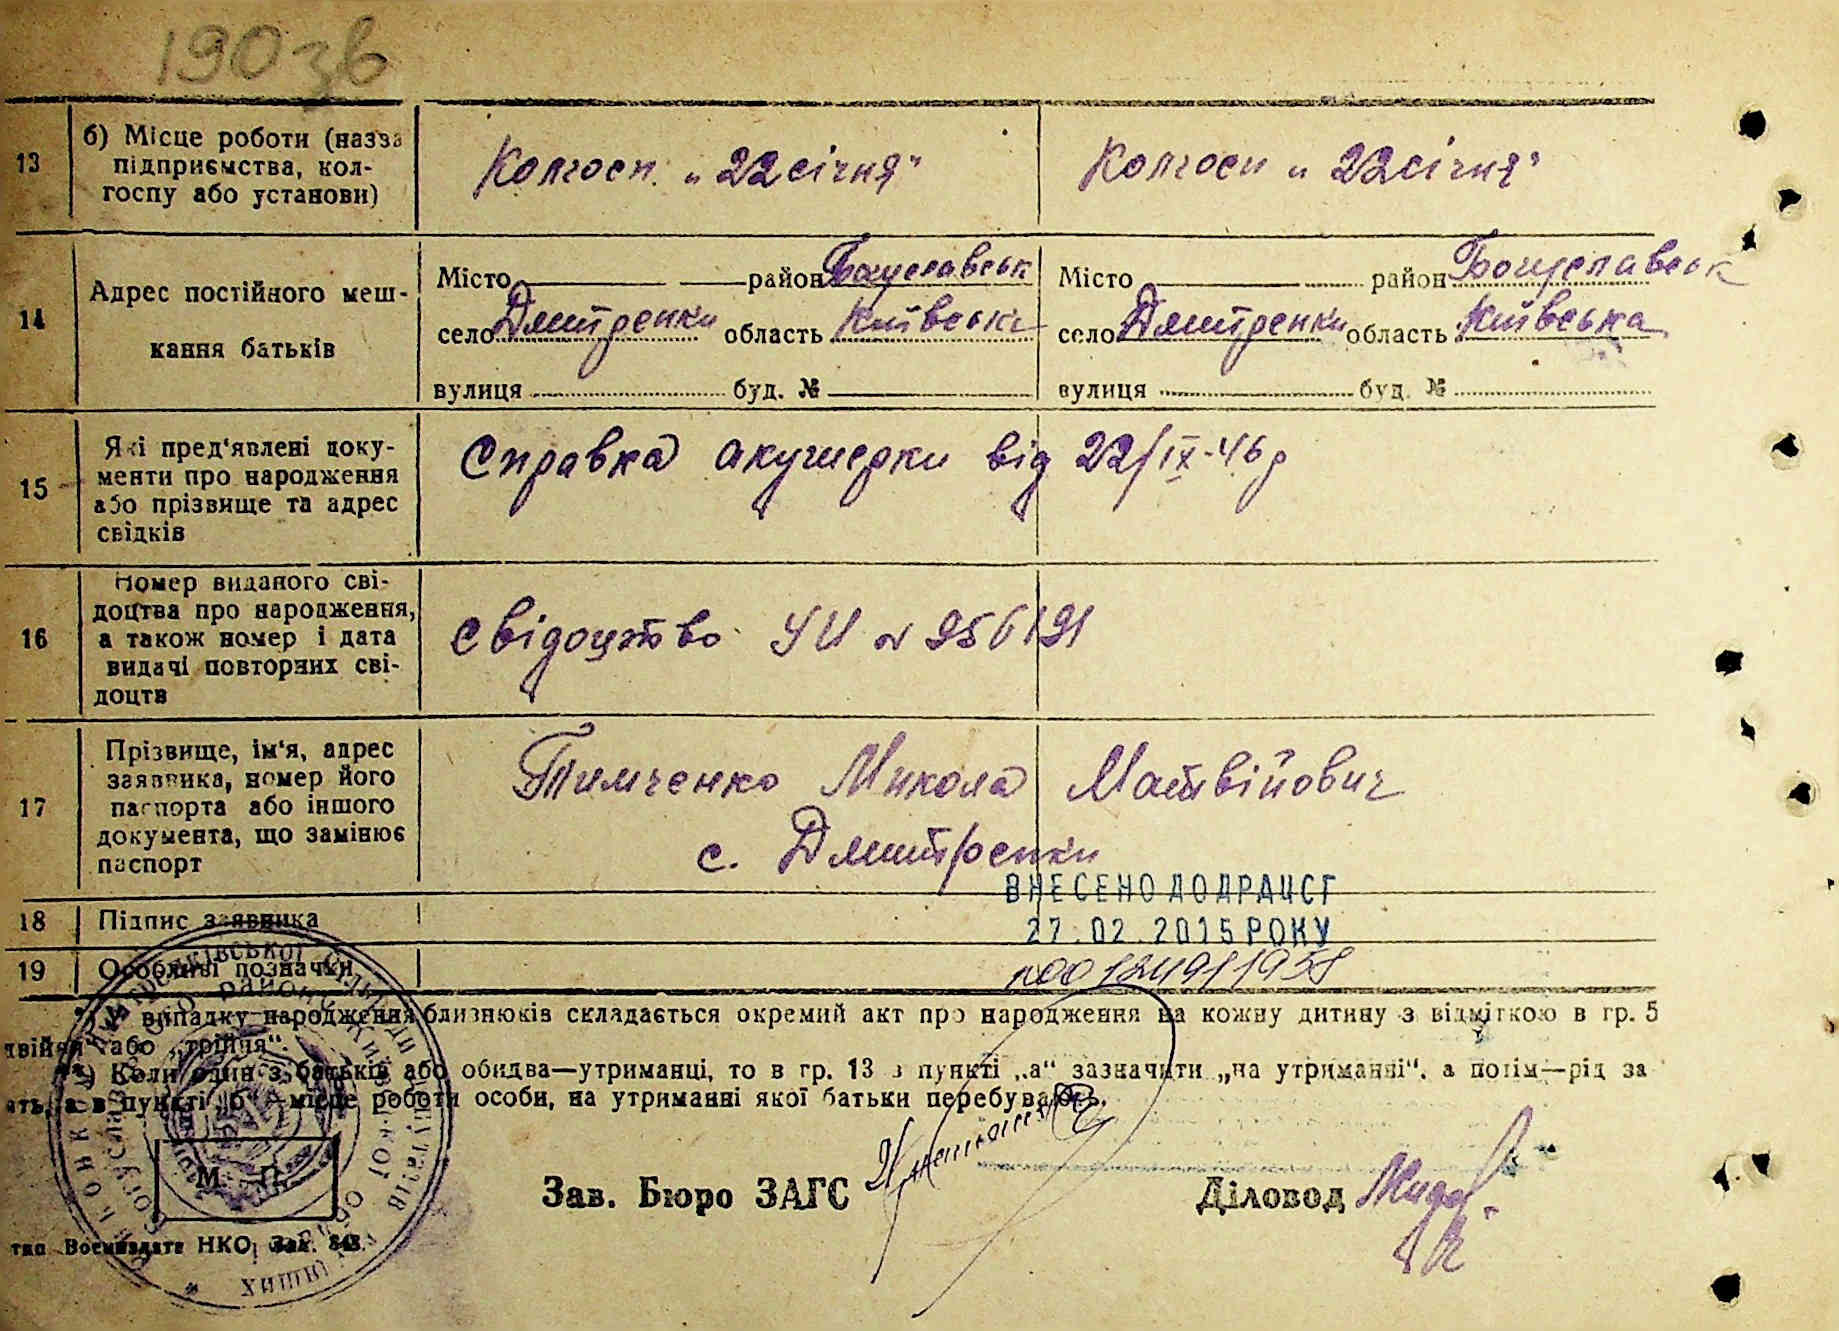 190 зв
13 б) Місце роботи (назва підприємства, колгоспу або установи)
Колгосп „22 січня"
Колгосп „22 січня"
14 Адрес постійного мешкання батьків
Місто район Богуславськ
село Дмитренки область Київська
вулиця буд. №
Місто район Богуславськ
село Дмитренки область Київська
вулиця буд. №
15 Які пред'явлені документи про народження або прізвище та адрес свідків
Справка акушерки від 22/IX-46 р
16 Номер виданого свідоцтва про народження, а також номер і дата видачі повторних свідоцтв
Свідоцтво УИ № 956191
17 Прізвище, ім'я, адрес заявника, номер його паспорта або іншого документа, що замінює паспорт
Тимченко Микола Матвійович
с. Дмитренки
ВНЕСЕНО ДО ДРАЦСГ
18 Підпис заявника
27.02.2015 РОКУ
19 Особливі позначки
№00124911958
*) У випадку народження близнюків складається окремий акт про народження на кожну дитину з відміткою в гр. 5
двійня" або „трійня".
**) Коли один з батьків або обидва—утриманці, то в гр. 13 в пункті „а" зазначити „на утриманні", а потім—рід за
а в пункті „б"—місце роботи особи, на утриманні якої батьки перебувають.
М. П.
Зав. Бюро ЗАГС
Діловод
Воениздата НКО, Зак. 848.